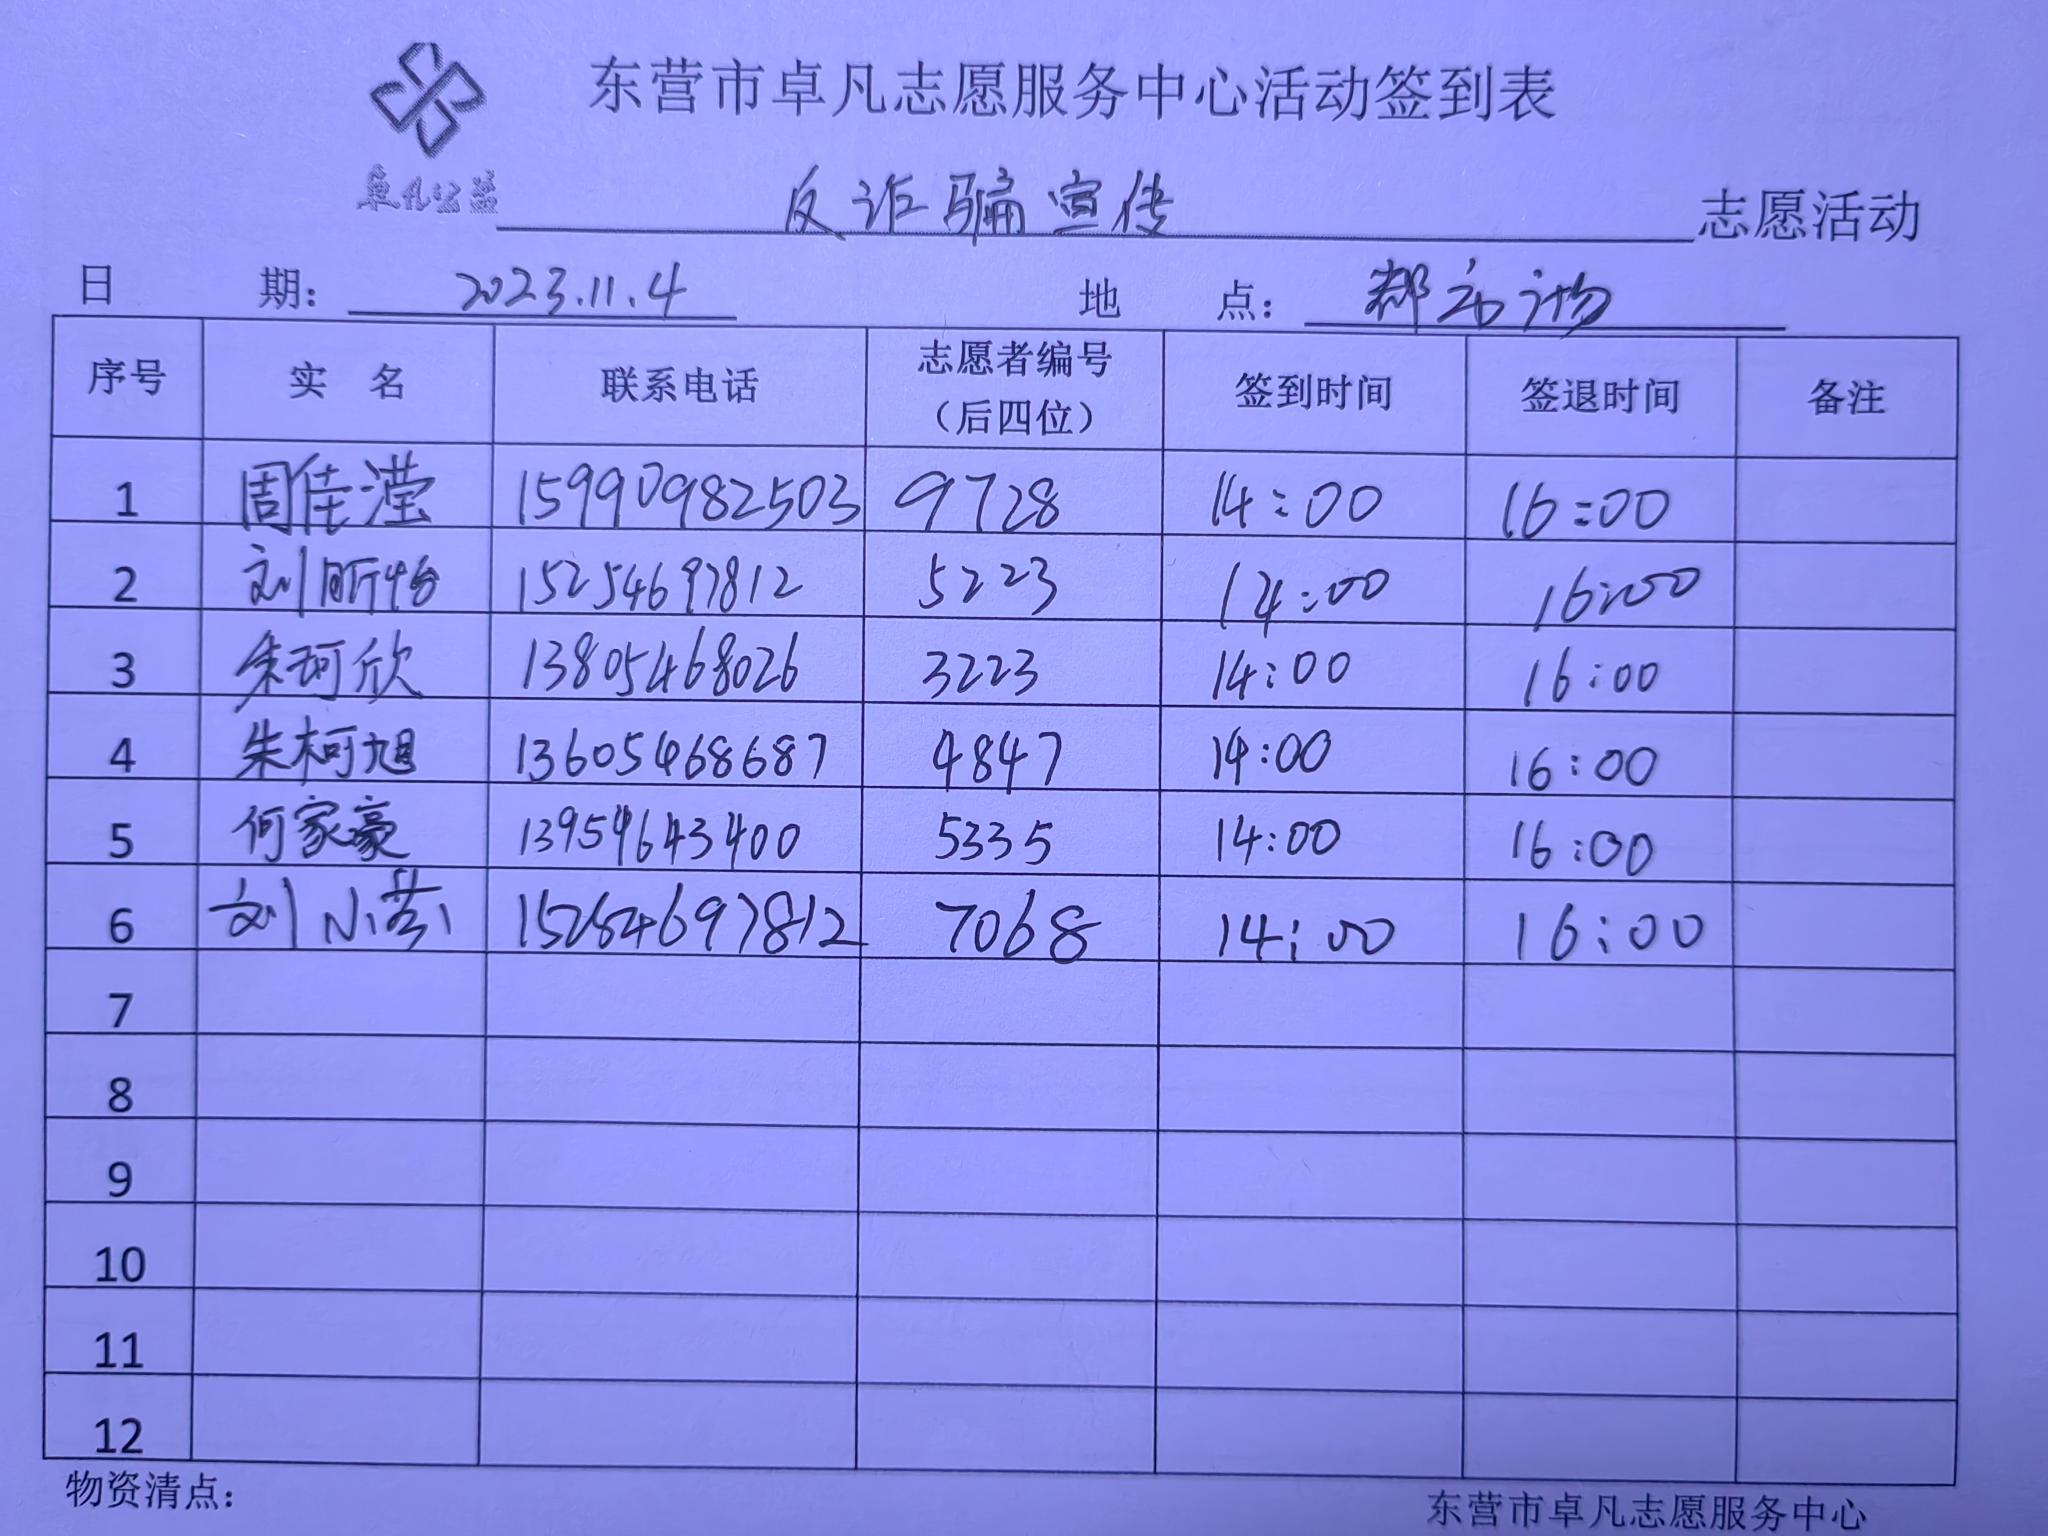 东营市卓凡志愿服务中心活动签到表
卓凡公益
反诈骗宣传 志愿活动
日 期： 2023.11.4 地 点：
序号 实 名 联系电话 志愿者编号（后四位） 签到时间 签退时间 备注
1 周佳滢 15990982503 9728 14:00 16:00
2 刘昕怡 15254697812 5223 14:00 16:00
3 朱珂欣 13805468026 3223 14:00 16:00
4 朱柯旭 13605468687 4847 14:00 16:00
5 何家豪 13954643400 5335 14:00 16:00
6 刘小 15254697812 7068 14:00 16:00
7
8
9
10
11
12
物资清点：
东营市卓凡志愿服务中心